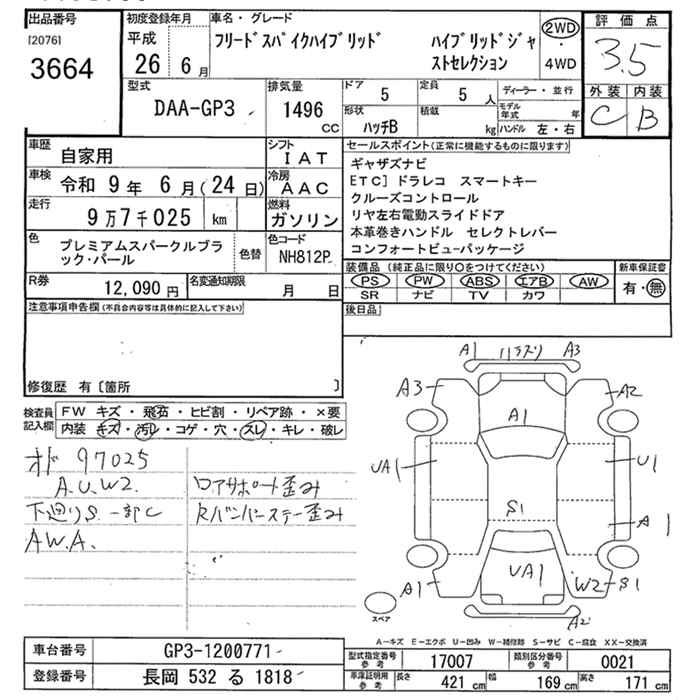 出品番号
[2076]
3664
初度登録年月
平成
26年 6月
車名・グレード
フリードスパイクハイブリッド ハイブリッドジャストセレクション
2WD
・
4WD
評価点
3.5
外装 内装
C B
型式
DAA-GP3
排気量
1496
CC
ドア
5
定員
5人
形状
ハッチB
積載
kg
ディーラー・並行
モデル年式 年
ハンドル 左・右
車歴
自家用
車検
令和 9年 6月(24日)
走行
9万7千025 km
色
プレミアムスパークルブラック・パール
色替
シフト
IAT
冷房
AAC
燃料
ガソリン
色コード
NH812P
セールスポイント(正常に機能するものに限ります)
ギャザズナビ
ETC] ドラレコ スマートキー
クルーズコントロール
リヤ左右電動スライドドア
本革巻きハンドル セレクトレバー
コンフォートビューパッケージ
R券
12,090円
名変通知期限
月 日
装備品(純正品に限り○をつけてください)
PS PW ABS エアB AW
SR ナビ TV カワ
新車保証書
有・無
後日品
注意事項申告欄(不具合内容等は具体的に記入して下さい)
修復歴 有[箇所 ]
検査員記入欄
FW キズ・飛石・ヒビ割・リペア跡・×要
内装 キズ・汚レ・コゲ・穴・スレ・キレ・破レ
オド 97025
A.U.W2.
下廻りS.一部C
A.W.A.
ロアサポート歪み
Rバンパーステー歪み
A1 ハガスリ A3
A3
A2
A1
UA1
U1
S1
A
A1
UA1
W2 S1
A2
スペア
A-キズ E-エクボ U-凹み W-補修跡 S-サビ C-腐食 XX-交換済
車台番号
GP3-1200771
登録番号
長岡 532 る 1818
型式指定番号
参考
17007
類別区分番号
参考
0021
車庫証明用
参考
長さ 421cm
幅 169cm
高さ 171cm